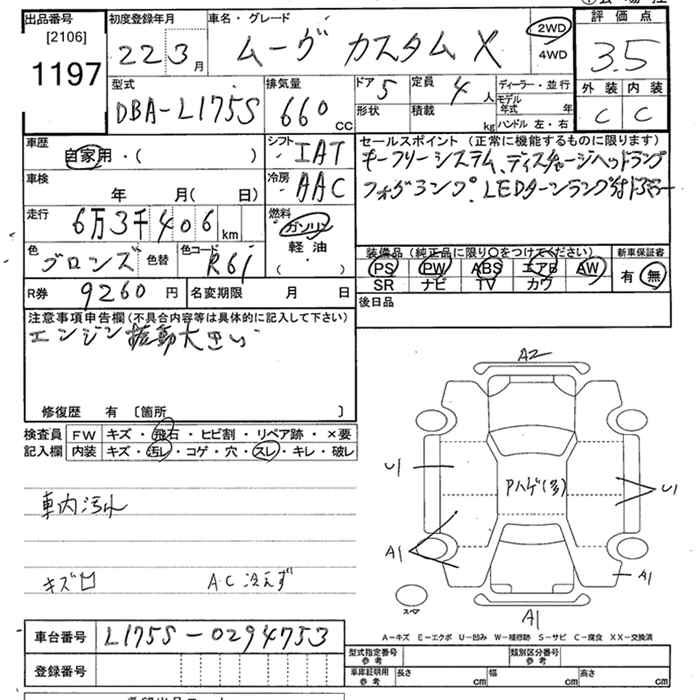 出品番号
[2106]
1197
初度登録年月
22 3月
車名・グレード
ムーヴ カスタム X
2WD
4WD
評価点
3.5
外装 内装
C C
型式
DBA-L175S
排気量
660 CC
ドア 5
定員 4人
形状
積載 kg
ディーラー・並行
モデル年式 年
ハンドル 左・右
車歴
自家用・( )
シフト IAT
車検
年 月( 日)
冷房 AAC
セールスポイント (正常に機能するものに限ります)
キーフリーシステム、ディスチャージヘッドランプ
フォグランプ、LEDターンランプ付ドアミラー
走行
6万3千406km
燃料
ガソリン
軽油
( ・ )
色 ブロンズ
色替
色コード R61
装備品 (純正品に限り○をつけてください)
PS PW ABS エアB AW
SR ナビ TV カワ
新車保証書
有 無
R券 9260円
名変期限 月 日
後日品
注意事項申告欄 (不具合内容等は具体的に記入して下さい)
エンジン振動大きい
修復歴 有 〔箇所 〕
検査員
記入欄
FW キズ・飛石・ヒビ割・リペア跡・×要
内装 キズ・汚レ・コゲ・穴・スレ・キレ・破レ
車内汚れ
キズ凹
AC冷えず
A2
U1
Aハゲ(多)
U1
A1
A1
スペア
A1
A―キズ E―エクボ U―凹み W―補修跡 S―サビ C―腐食 XX―交換済
車台番号 L175S-0294753
登録番号
型式指定番号 参考
類別区分番号 参考
車庫証明用 参考
長さ cm 幅 cm 高さ cm